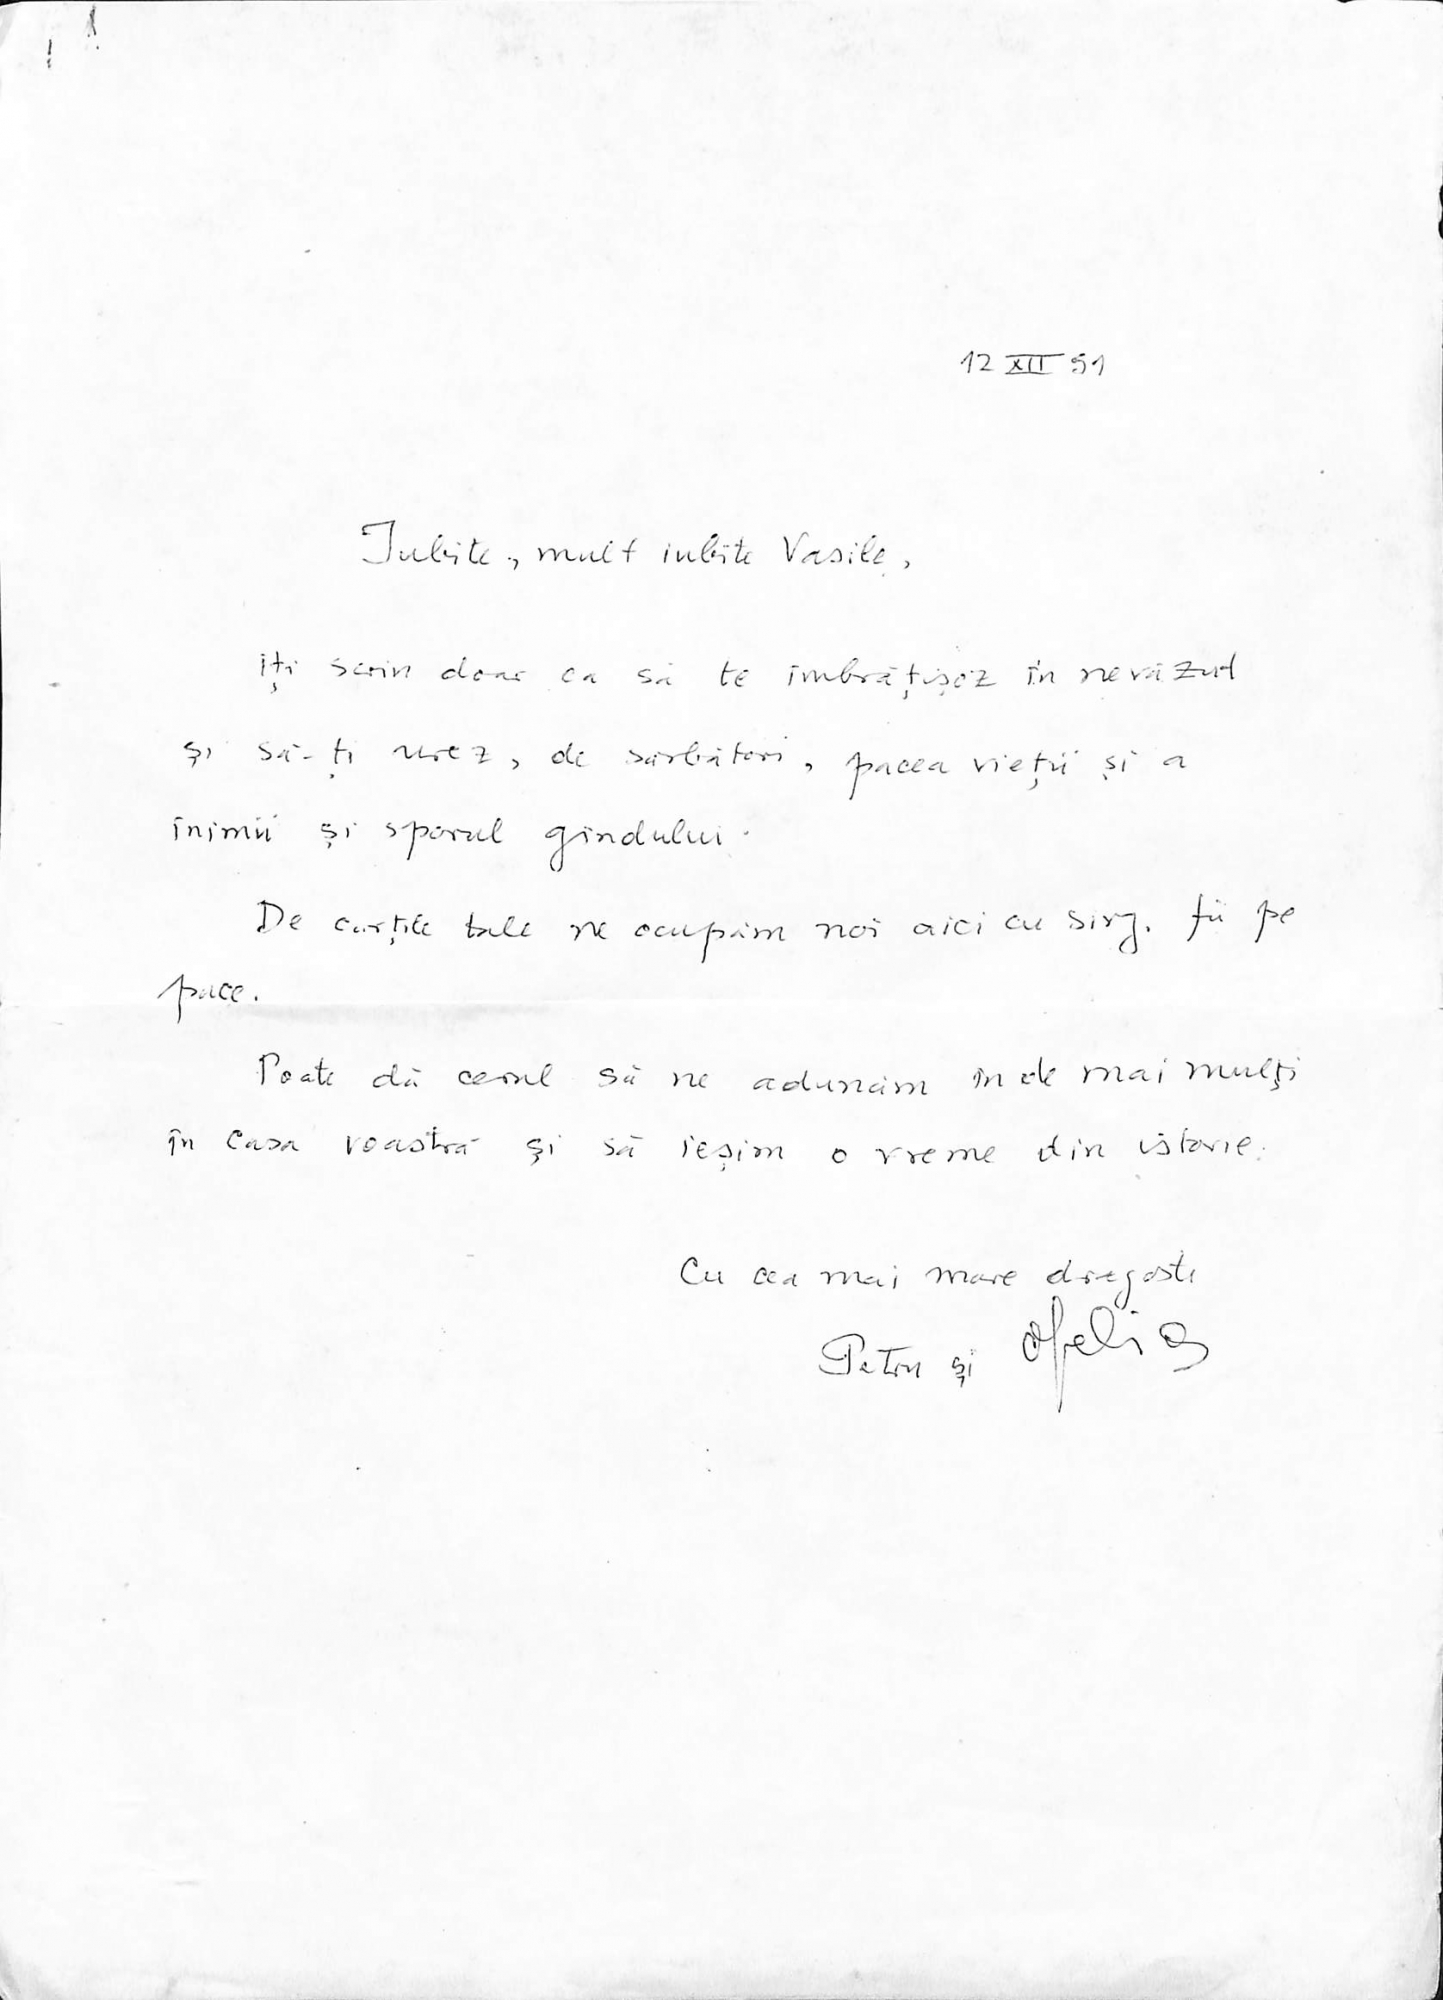 12 XII 91
Iubite, mult iubite Vasile,
îți scriu doar ca să te îmbrățișez în nevăzut
și să-ți urez, de sărbători, pacea vieții și a
inimii și sporul gîndului.
De cărțile tale ne ocupăm noi aici cu sîrg. Fii pe
pace.
Poate dă cerul să ne adunăm înde mai mulți
în casa voastră și să ieșim o vreme din istorie.
Cu cea mai mare dragoste
Petru și Ofelia